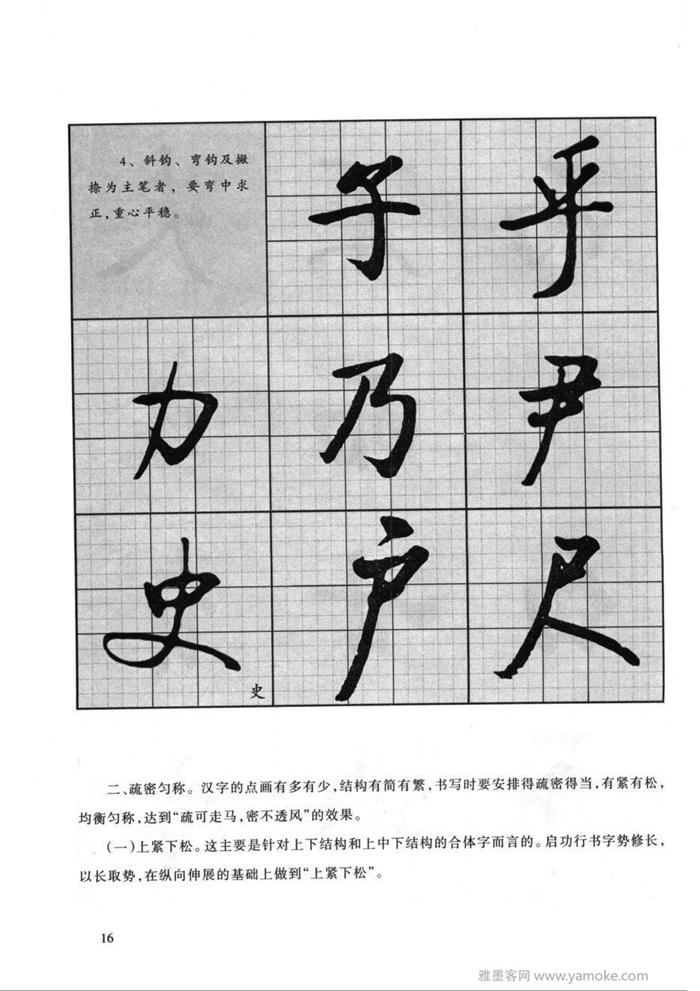 4、斜钩、弯钩及撇
捺为主笔者，要弯中求
正，重心平稳。
子 乎
力 乃 尹
史 户 尺
史
二、疏密匀称。汉字的点画有多有少，结构有简有繁，书写时要安排得疏密得当，有紧有松，
均衡匀称，达到“疏可走马，密不透风”的效果。
（一）上紧下松。这主要是针对上下结构和上中下结构的合体字而言的。启功行书字势修长，
以长取势，在纵向伸展的基础上做到“上紧下松”。
16
雅墨客网 www.yamoke.com